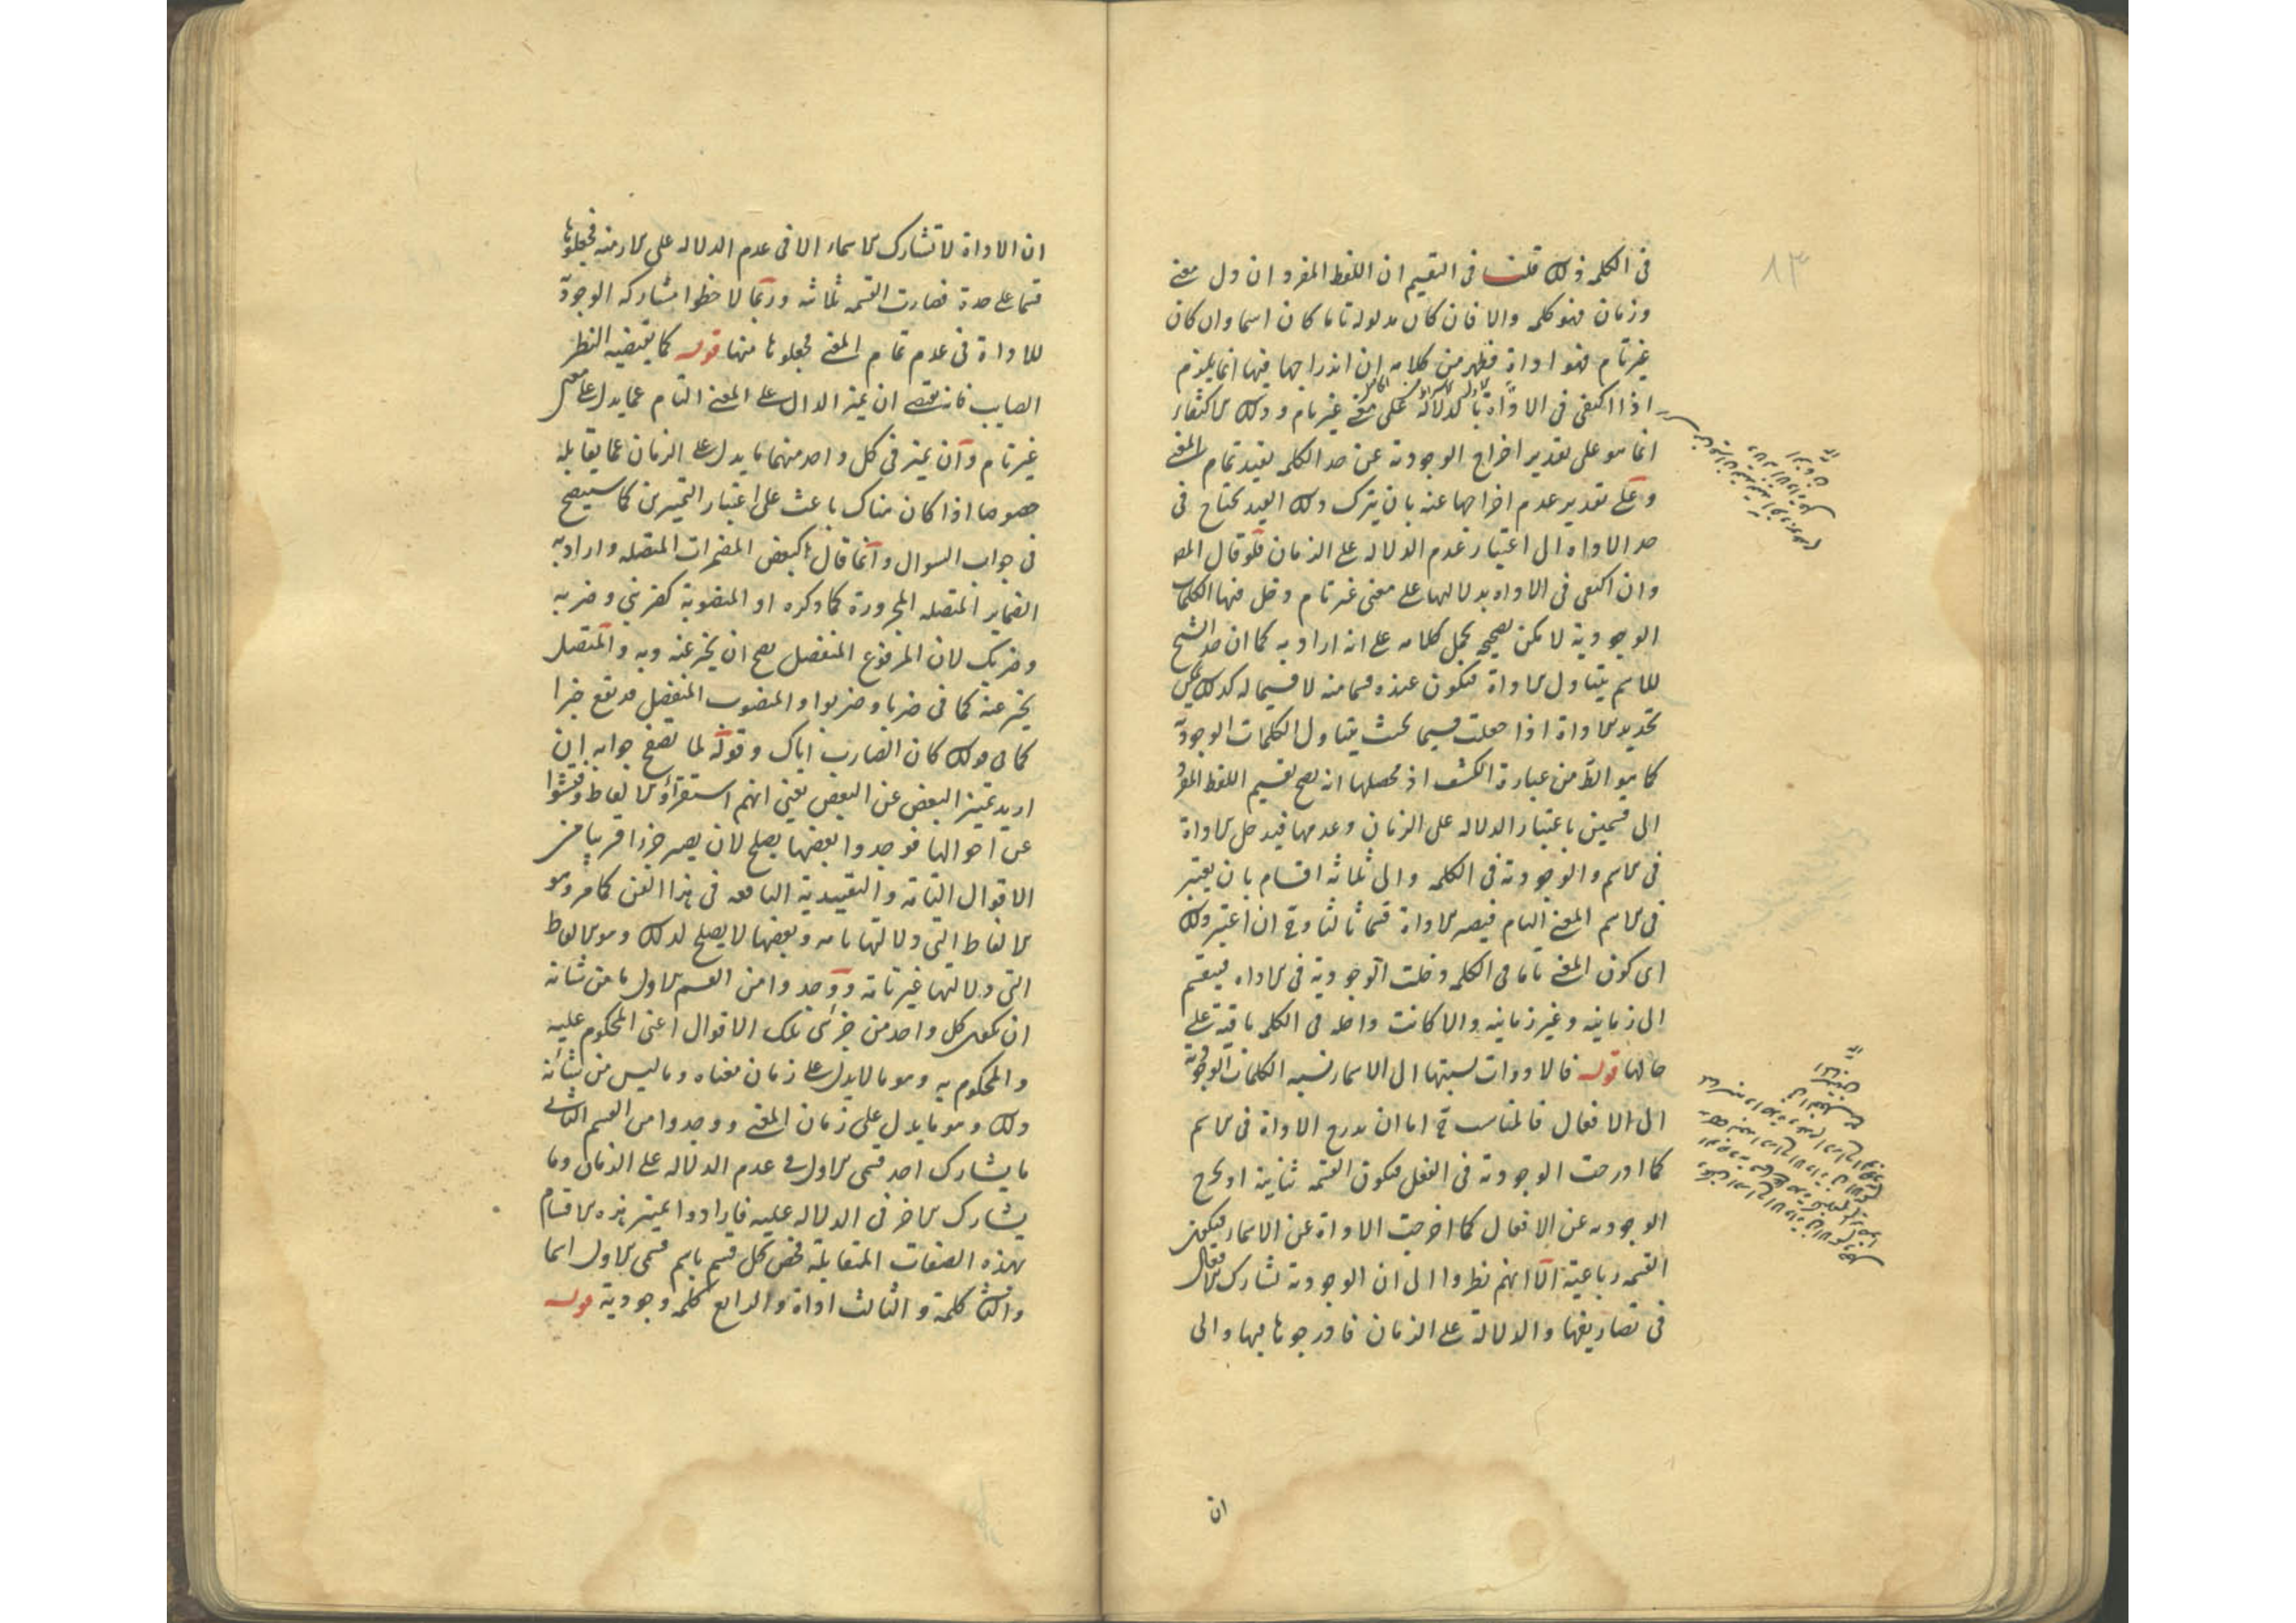 ٨٣
فى الكلمة وذلك قلت فى التقسيم ان اللفظ المفرد ان دل معنى
وزمان فهو كلمة والا فان كان مدلوله تاما كان اسما وان كان
غير تام فهو اداة فظهر من كلامه ان اندراجها فيها انما يلزم
اذا اكتفى فى الاداة بالدلالة على معنى غير تام وذلك الاكتفاء
انما هو على تقدير اخراج الوجودية عن حد الكلمة بقيد تمام المعنى
وعلى تقدير عدم اخراجها عنه بان يترك ذلك القيد يحتاج فى
حد الاداة الى اعتبار عدم الدلالة على الزمان فلو قال المص
وان اكتفى فى الاداة بدلالتها على معنى غير تام دخل فيها الكلمات
الوجودية لا يمكن تصحيحه بحمل كلامه على انه اراد به كما ان حد الشيخ
للاسم يتناول الاداة فيكون عنده قسما منه لا قسيما له كذلك يمكن
تحديد الاداة اذا جعلت قسيما بحيث يتناول الكلمات الوجودية
كما هو الظ من عبارة الكشف اذ محصلها انه يصح تقسيم اللفظ المفرد
الى قسمين باعتبار الدلالة على الزمان وعدمها فيدخل الاداة
فى الاسم والوجودية فى الكلمة والى ثلاثة اقسام بان يعتبر
فى الاسم المعنى التام فيصير الاداة قسما ثالثا وح ان اعتبر ذلك
اى كون المعنى تاما فى الكلمة دخلت الوجودية فى الاداة فينقسم
الى زمانية وغير زمانية والا كانت داخلة فى الكلمة باقية على
حالها قوله فالادوات نسبتها الى الاسماء نسبة الكلمات الوجودية
الى الافعال فالمناسب ح اما ان يدرج الاداة فى الاسم
كما ادرجت الوجودية فى الفعل فيكون القسمة ثنائية او يخرج
الوجودية عن الافعال كما اخرجت الاداة عن الاسماء فيكون
القسمة رباعية الا انهم نظروا الى ان الوجودية تشارك الافعال
فى تصاريفها والدلالة على الزمان فادرجوها فيها والى
ان
ان الاداة لا تشارك الاسماء الا فى عدم الدلالة على الازمنة فجعلوها
قسما على حدة فصارت القسمة ثلاثة وربما لاحظوا مشاركة الوجودية
للاداة فى عدم تمام المعنى فجعلوها منها قوله كما يقتضيه النظر
الصايب فانه يقتضى ان يميز الدال على المعنى التام عما يدل على معنى
غير تام وان يميز فى كل واحد منهما ما يدل على الزمان عما يقابله
خصوصا اذا كان هناك باعث على اعتبار التمييزين كما سيصح
فى جواب السوال وانما قال كبعض المضمرات المتصلة واراد به
الضماير المتصلة المجرورة كما ذكره او المنصوبة كضربنى وضربه
وضربك لان المرفوع المنفصل يصح ان يخبر عنه وبه والمتصل
يخبر عنه كما فى ضربا وضربوا والمنصوب المنفصل قد يقع خبرا
كما فى قولك كان الضارب اياك وقوله لما تصفح جوابه ان
اريد تمييز البعض عن البعض يعنى انهم استقرأو الالفاظ وفتشوا
عن احوالها فوجدوا بعضها يصلح لان يصير جزءا قريبا من
الاقوال التامة والتقييدية النافعة فى هذا الفن كما مر وهو
الالفاظ التى دلالتها تامة وبعضها لا يصلح لذلك وهو الالفاظ
التى دلالتها غير تامة ووجدوا من القسم الاول ما من شانه
ان يكون كل واحد من جزئى تلك الاقوال اعنى المحكوم عليه
والمحكوم به وهو ما لا يدل على زمان معناه وما ليس من شانه
ذلك وهو ما يدل على زمان المعنى ووجدوا من القسم الثانى
ما يشارك احد قسمى الاول فى عدم الدلالة على الزمان وما
يشارك الاخر فى الدلالة عليه فارادوا تمييز هذه الاقسام
بهذه الصفات المتقابلة فخص كل قسم باسم فسمى الاول اسما
والثانى كلمة والثالث اداة والرابع كلمة وجودية قوله